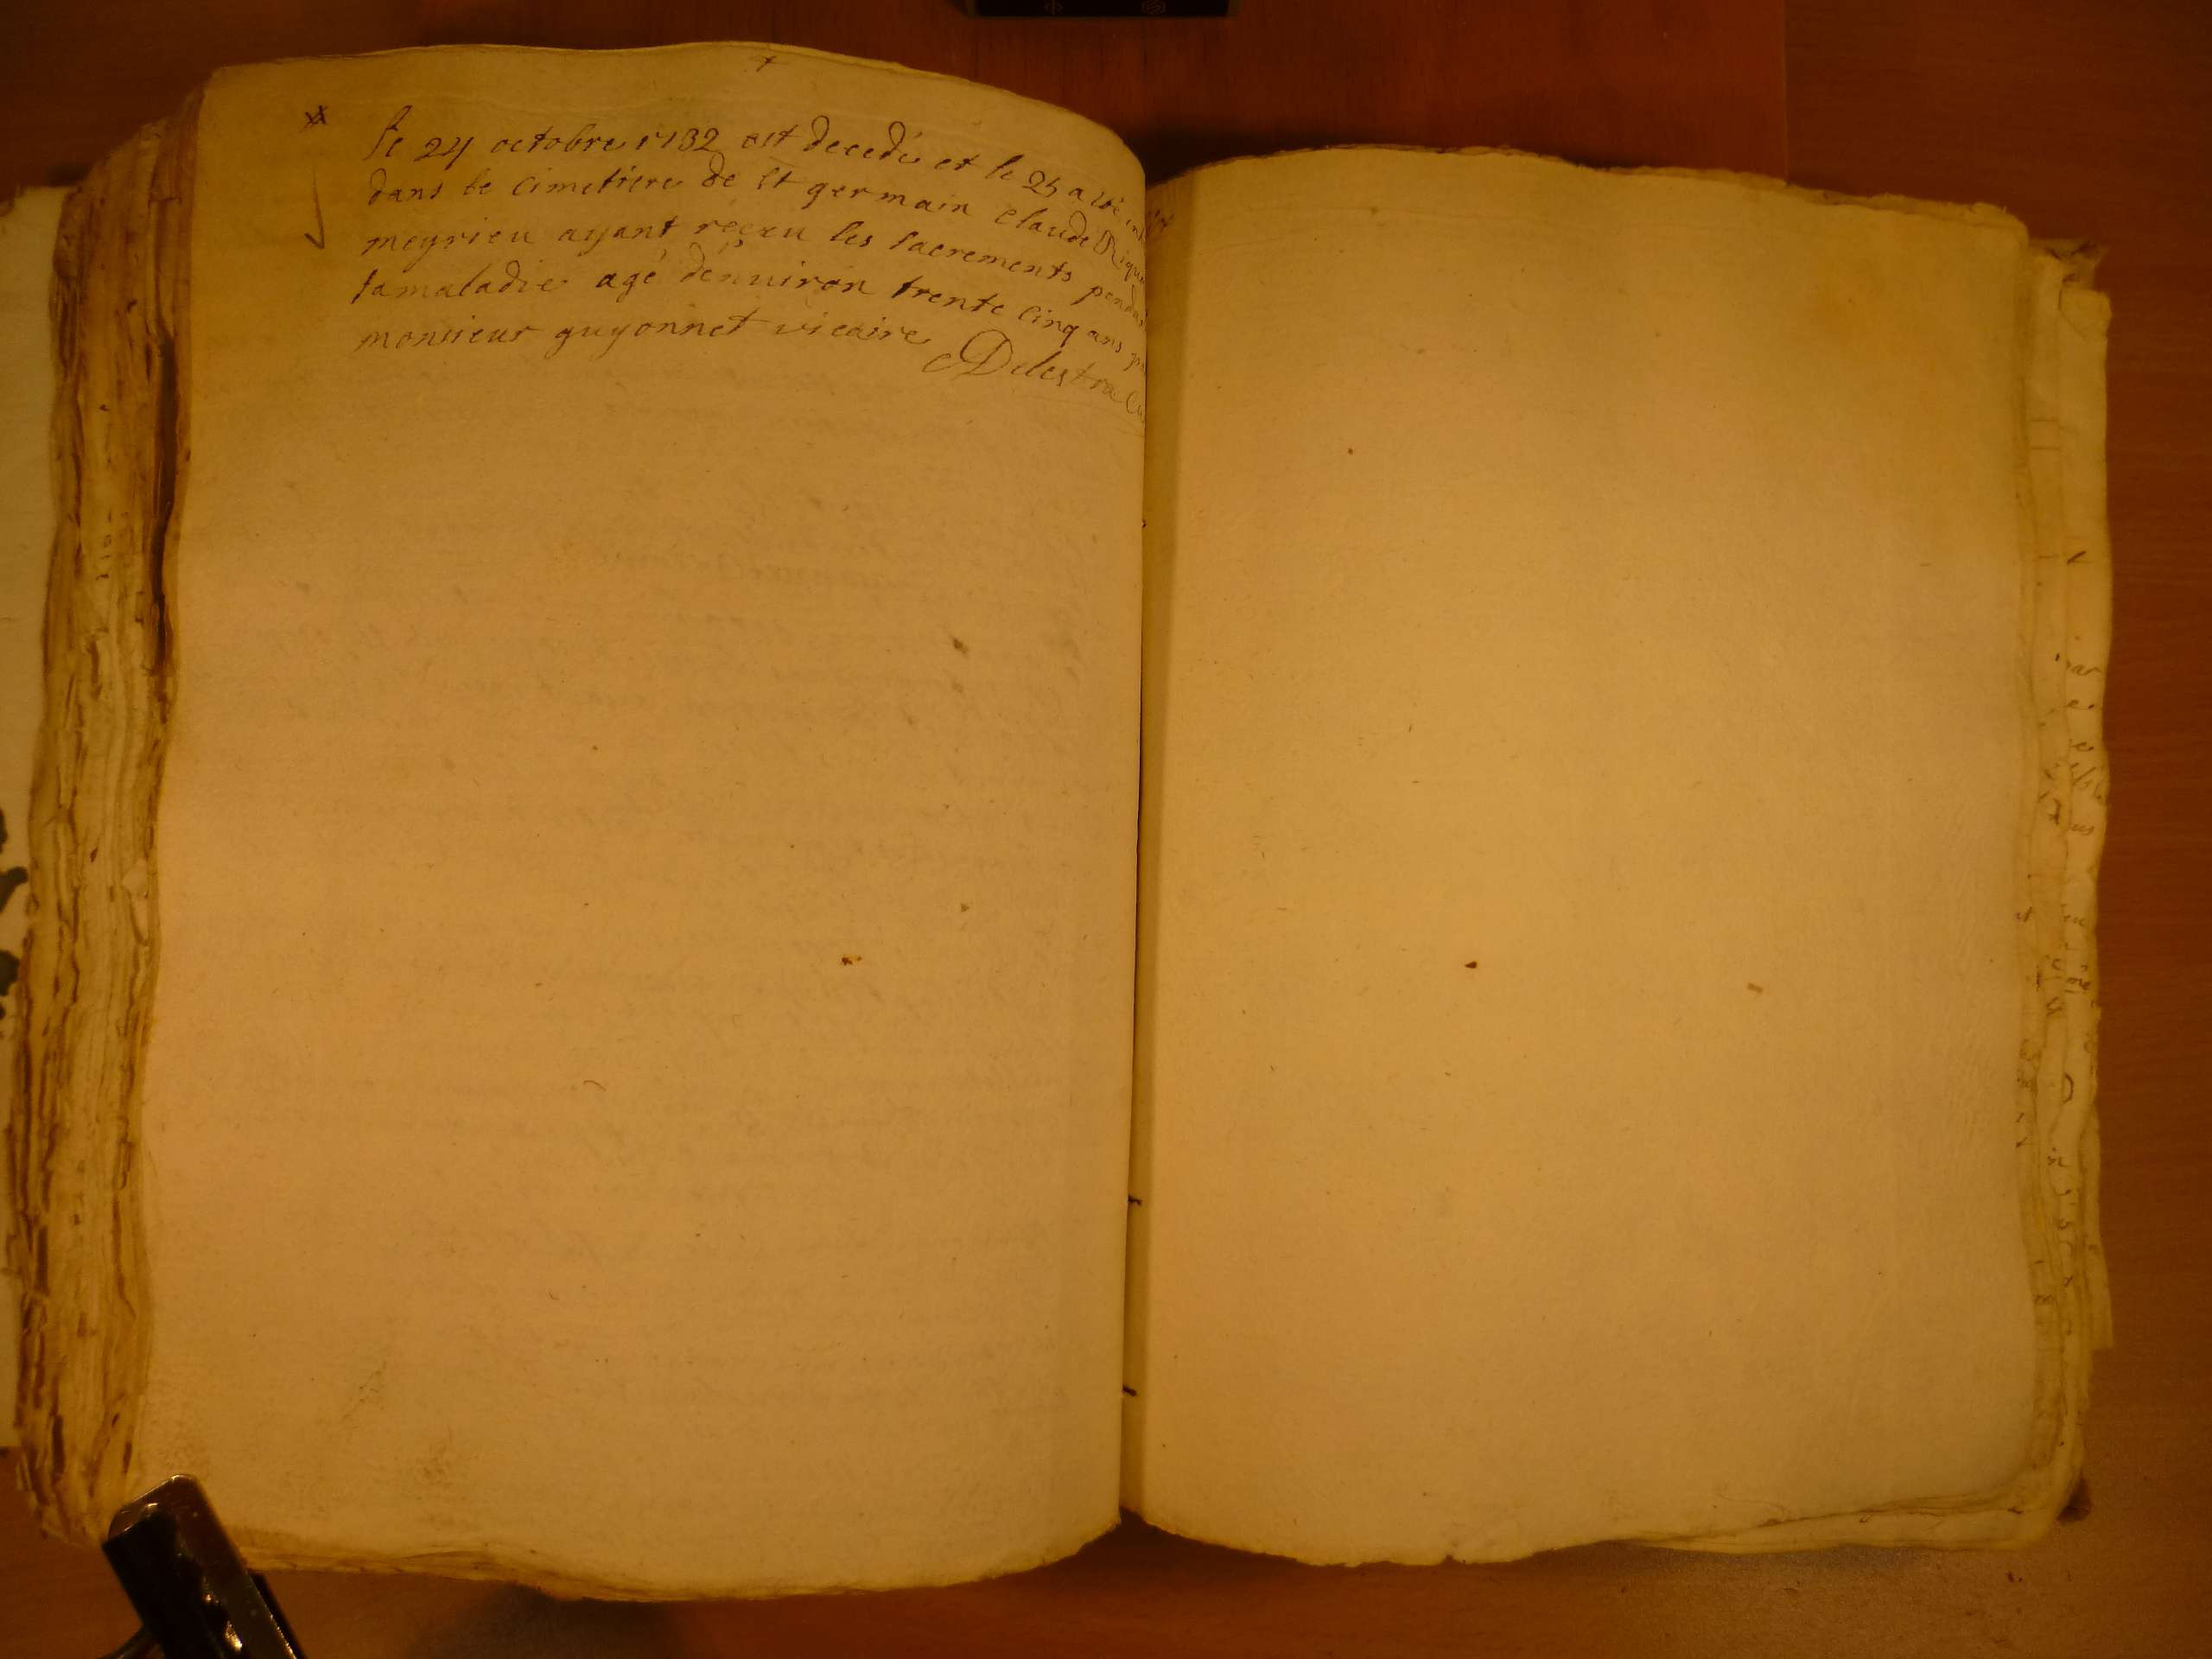 le 24 octobre 1732 est decedé et le 25 a eté
dans le cimetiere de st germain claude
meyrieu ayant reçeu les sacrements
samaladie agé denuiron trente cinq ans
monsieur guyonnet vicaire
Delestra